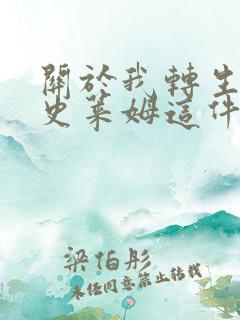 關於我轉生
史萊姆這件
梁伯彤
未任同意禁止转载